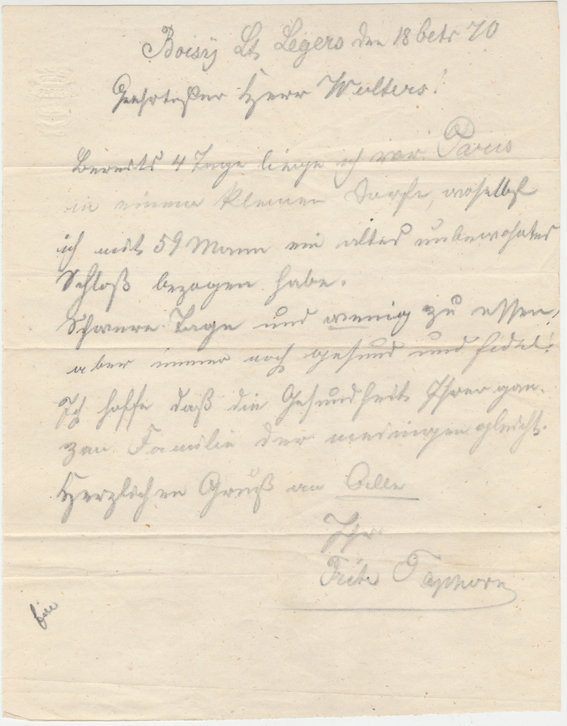 Boisy St. Legers den 18 bets 70
Geehrtester Herr Wolters!
Bereits 4 Tage liege ich vor Paris
in einem kleinen Dorfe, woselbst
ich mit 59 Mann ein altes unbewohntes
Schloß bezogen habe.
Schwere Tage und wenig zu essen,
aber immer noch gesund und fidel!
Ich hoffe daß die Gesundheit Ihrer gan-
zen Familie der meinigen gleicht.
Herzlichen Gruß an Alle
Ihr
Fritz Taphorn